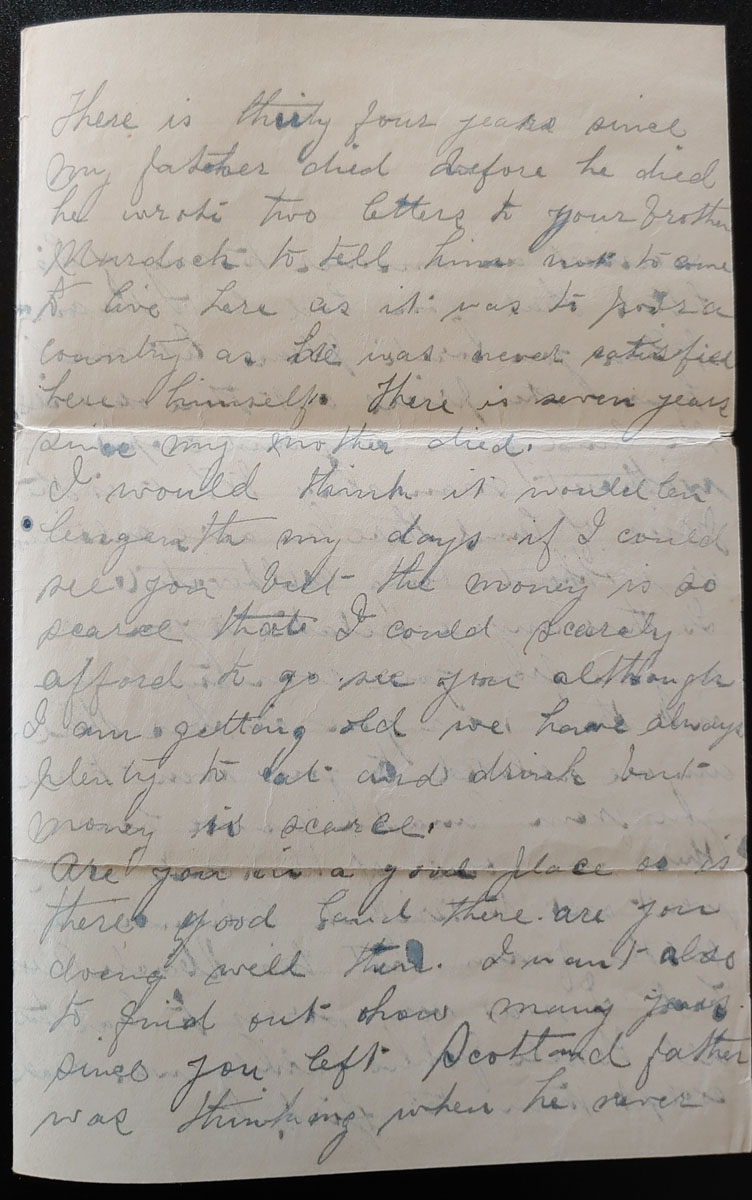 There is thirty four years since
my father died before he died
he wrote two letters to your brother
Murdock to tell him not to come
to live here as it was to poor a
country as he was never satisfied
here himself. There is seven years
since my mother died.
I would think it would len
lengenth my days if I could
see you but the money is so
scarce that I could scarcely
afford to go see you although
I am getting old we have always
plenty to eat and drink but
money is scarce.
Are you in a good place or is
there good land there are you
doing well there. I want also
to find out how many years
since you left Scotland father
was thinking when he never